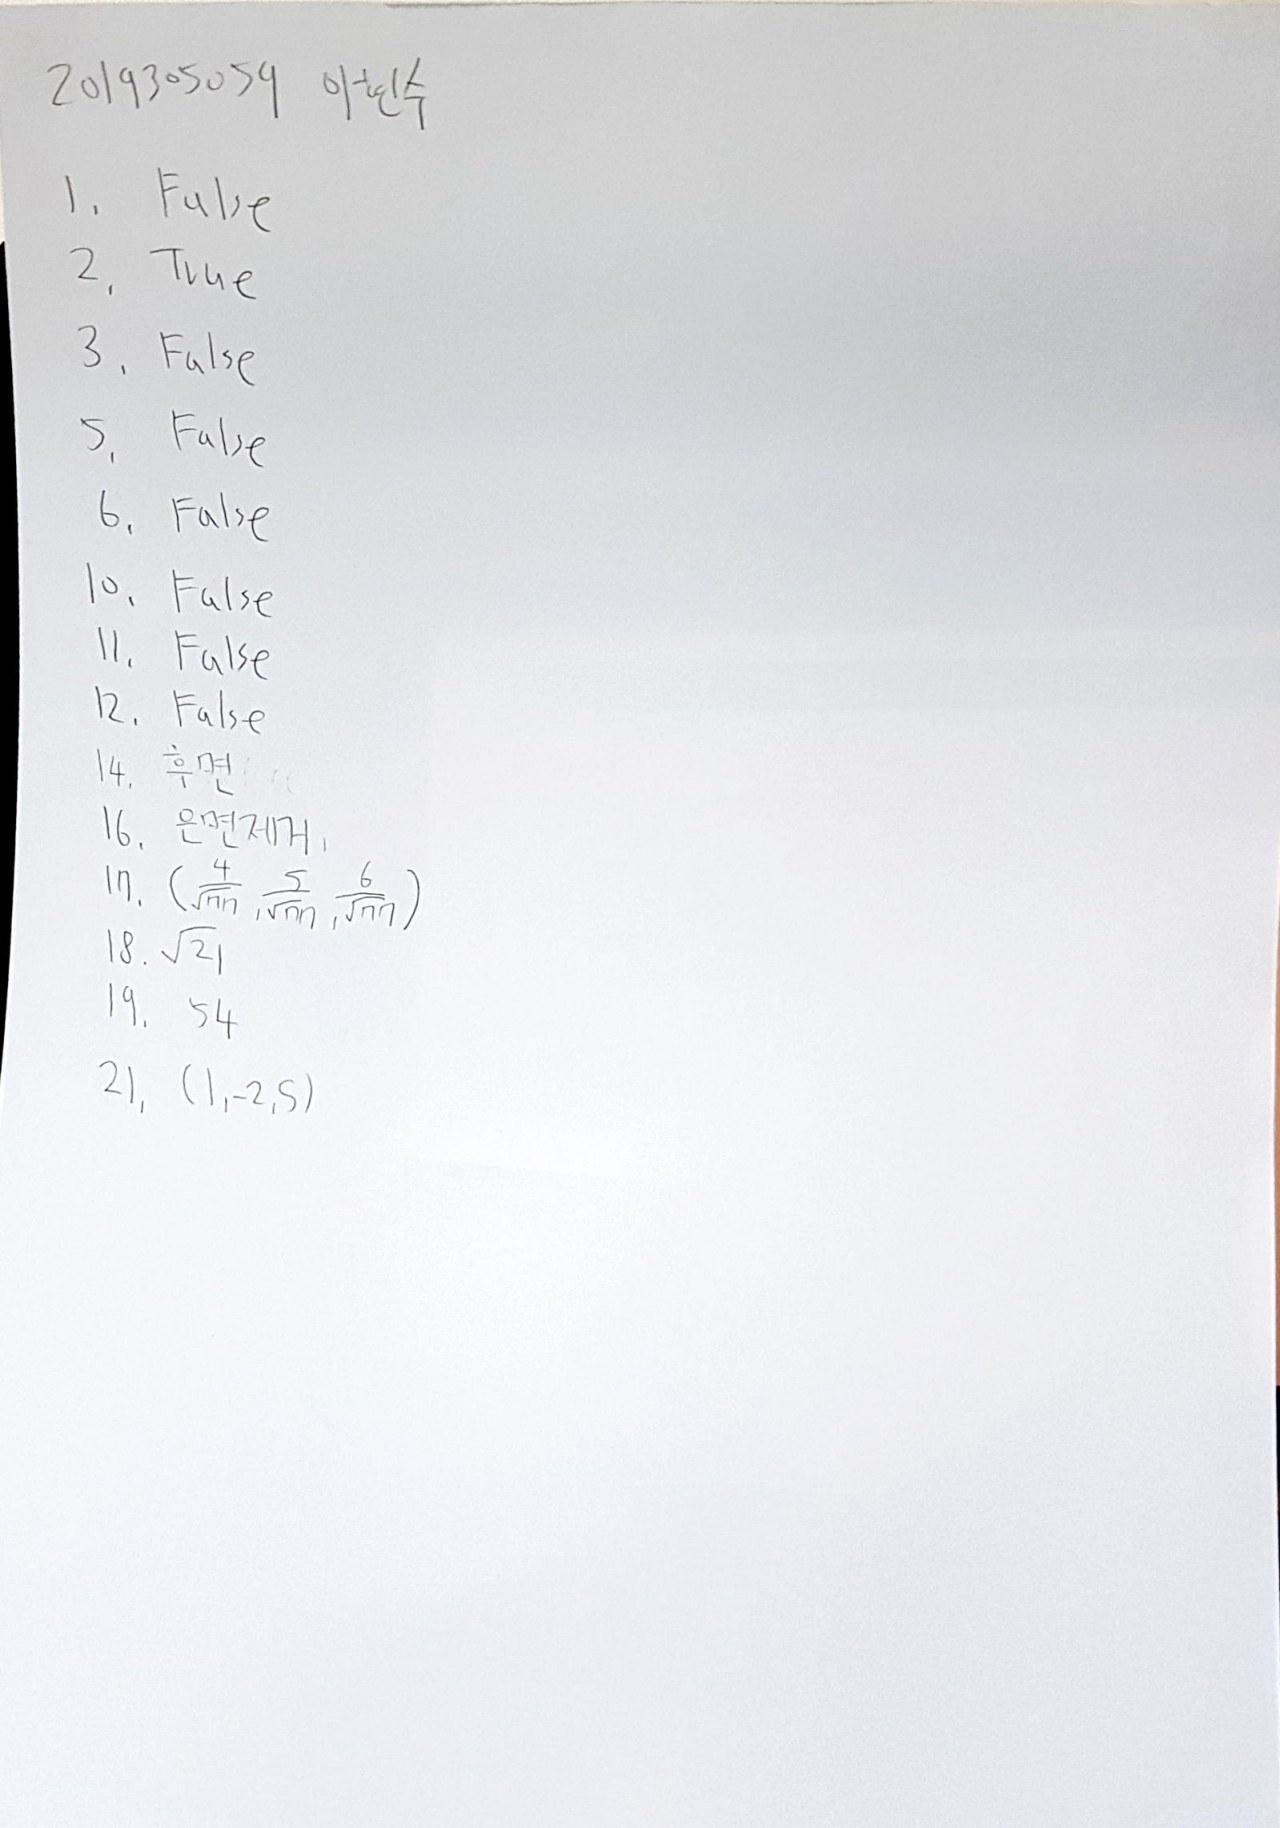 2019305059 이현수
1. False
2. True
3. False
5. False
6. False
10. False
11. False
12. False
14. 후면
16. 은면제거.
17. (4/√77, 5/√77, 6/√77)
18. √21
19. 54
21. (1,-2,5)